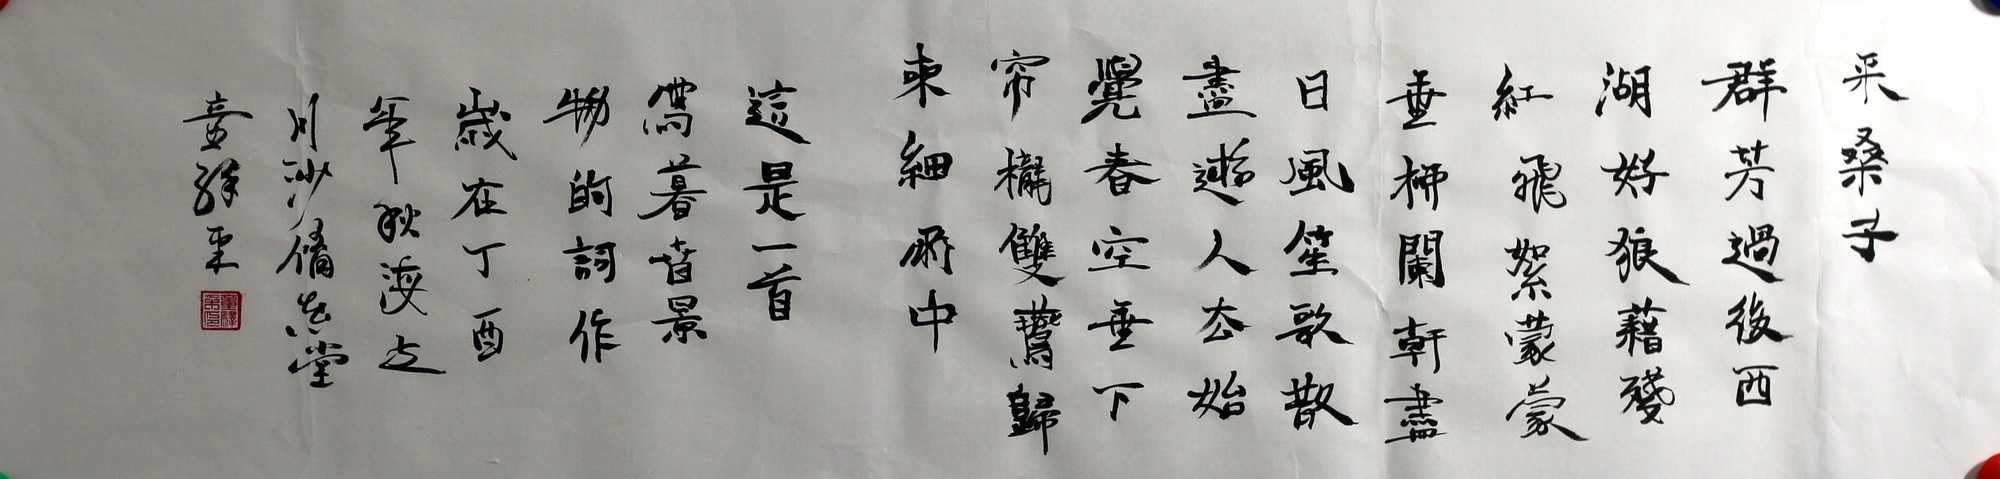 采桑子
群芳過後西
湖好狼藉殘
紅飛絮蒙蒙
垂柳闌軒盡
日風笙歌散
盡遊人去始
覺春空垂下
帘櫳雙鷰歸
來細雨中
這是一首
寫暮春景
物的詞作
歲在丁酉
年秋海上
川沙脩志堂